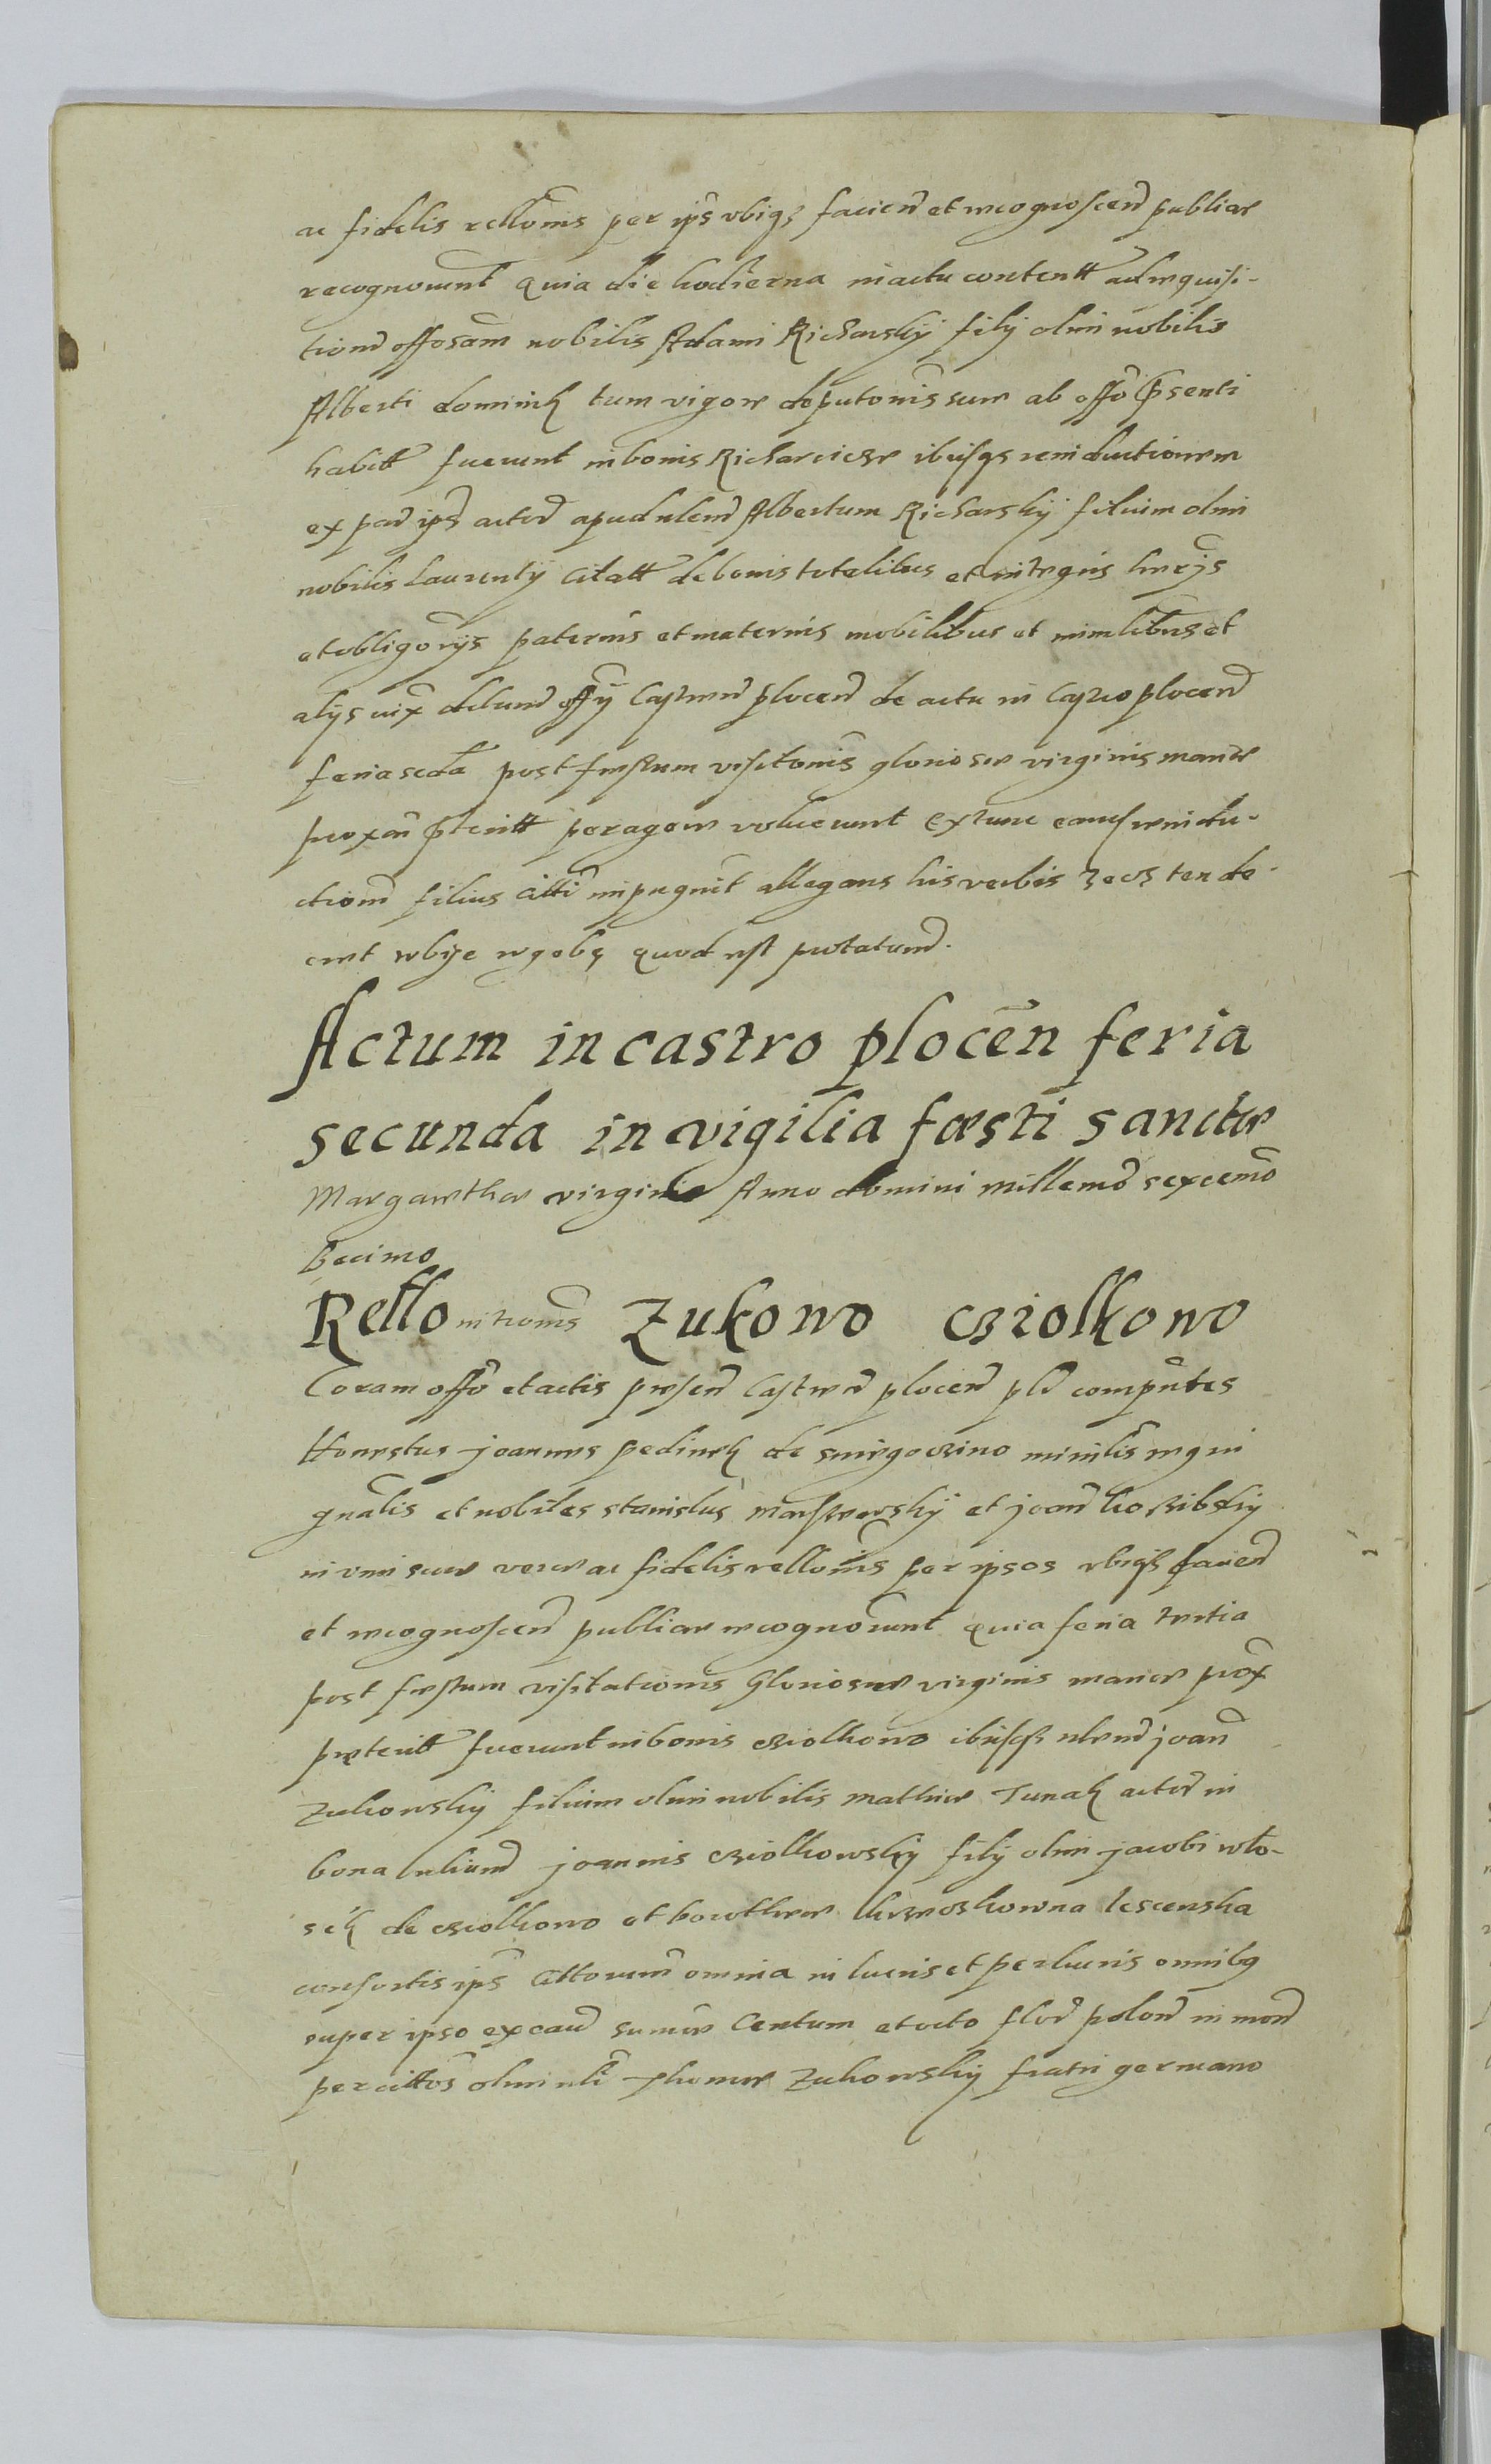 ac fidelis rellonis per ips ubiq faciend et recognoscend publice
recognoverunt quia die hodierna in actu contentt ad inquisi-
tiond offosam nobilis Adami Richarskij filij olim nobilis
Alberti dominik tum vigore deputonis sue ab offo psenti
habitt fuerunt in bonis Richarcicze ibiq reinductionem
ex pad ips actor apud nlem Albertum Richarskij filium olim
nobilis Laurentij citatt de bonis totalibus et integris
et obligorijs paternis et maternis mobilibus et immlibus et
alijs offij Castren plocen de actu in Castro plocen
feria scda post festum visitonis gloriose virginis marie
proxm pteritt peragere voluerunt Extunc reindu-
ctiond filius citti impugnit allegans his verbis
quod est protatum.
Actum in castro plocen feria
secunda in vigilia fæsti sanctæ
Margarethæ virginis Anno domini millemo sexcemo
Decimo
Rello intromis Zukowo Cziolkowo
Coram offo et actis presen Castren plocen psl compntes
Honestus joannes pedinek de ministlis regni
gnalis et nobiles stanislus et joan
in vim sue vere ac fidelis rellonis per ipsos ubiq faciend
et recognoscend publice recognoverunt quia feria tertia
post festum visitationis Gloriosæ virginis mariæ prox
preteritt fuerunt in bonis cziolkowo ibiq nlem joan
Zukowskij filium olim nobilis mathiæ Tunak actor in
bona nlium joannis cziolkowskij filij olim jacobi wlo-
sek de cziolkowo et
consortis ips cittorum omnia in lucris et perlucris omnibq
super ipso ex caus summæ Centum et octo flor polon in mon
per cittos olim nli thomæ Zukowskij fratri germano